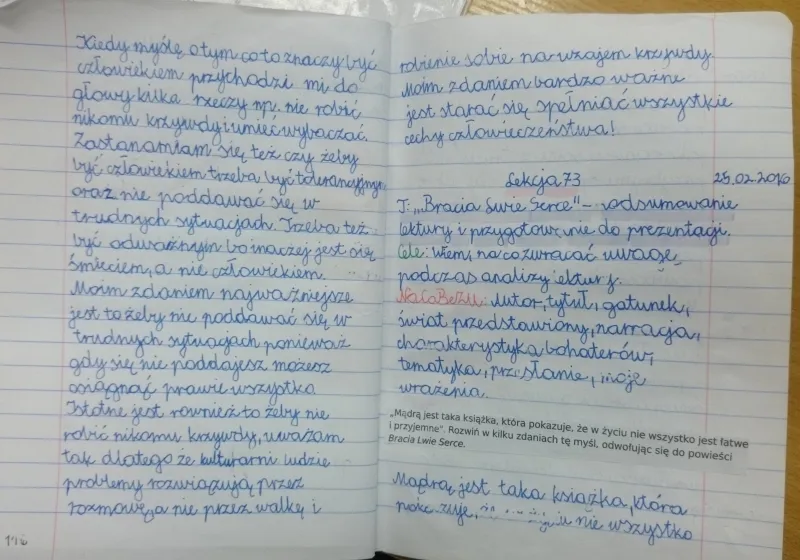 Kiedy myślę o tym co to znaczy być
człowiekiem przychodzi mi do
głowy kilka rzeczy np. nie robić
nikomu krzywdy i umieć wybaczać.
Zastanawiam się też czy żeby
być człowiekiem trzeba być tolerancyjnym
oraz nie poddawać się w
trudnych sytuacjach. Trzeba też
być odważnym bo inaczej jest się
śmieciem, a nie człowiekiem.
Moim zdaniem najważniejsze
jest to żeby nie poddawać się w
trudnych sytuacjach ponieważ
gdy się nie poddajesz możesz
osiągnąć prawie wszystko
Istotne jest również to żeby nie
robić nikomu krzywdy, uważam
tak dlatego że kulturarni ludzie
problemy rozwiązują przez
rozmowę, a nie przez walkę i
116
robienie sobie na wzajem krzywdy.
Moim zdaniem bardzo ważne
jest starać się spełniać wszystkie
cechy człowieczeństwa!
Lekcja 73 25.02.2016
T: „Bracia Lwie Serce" – podsumowanie
lektury i przygotowanie do prezentacji.
Cele: Wiem, na co zwracać uwagę
podczas analizy lektury.
NaCoBeZU: Autor, tytuł, gatunek,
świat przedstawiony, narracja,
charakterystyka bohaterów,
tematyka, przesłanie, moje
wrażenia.
„Mądrą jest taka książka, która pokazuje, że w życiu nie wszystko jest łatwe
i przyjemne". Rozwiń w kilku zdaniach tę myśl, odwołując się do powieści
Bracia Lwie Serce.
Mądrą jest taka książka, która
pokazuje, nie wszystko